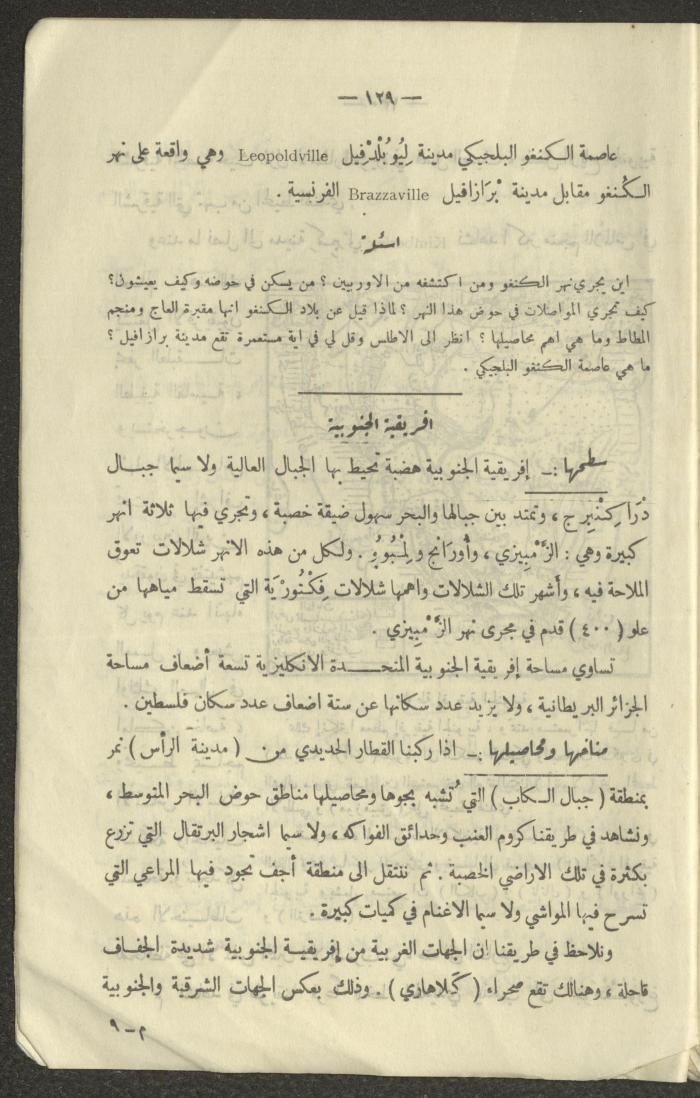 — ١٢٩ —
عاصمة الكنغو البلجيكي مدينة لِيُوبُلْدْفِيل Leopoldville وهي واقعة على نهر
الكُنغو مقابل مدينة بْرَازافيل Brazzaville الفرنسية .
اسئلة
اين يجري نهر الكنغو ومن اكتشفه من الاوربيين ؟ من يسكن في حوضه وكيف يعيشون؟
كيف تجري المواصلات في حوض هذا النهر ؟ لماذا قيل عن بلاد الكنغو انها مقبرة العاج ومنجم
المطاط وما هي اهم محاصيلها ؟ انظر الى الاطلس وقل لي في اية مستعمرة تقع مدينة برازافيل ؟
ما هي عاصمة الكنغو البلجيكي .
افريقية الجنوبية
سطحها :ـ إفريقية الجنوبية هضبة تحيط بها الجبال العالية ولا سيما جبال
دْرَاكِنْبِرج ، وتمتد بين جبالها والبحر سهول ضيقة خصبة ، وتجري فيها ثلاثة انهر
كبيرة وهي : الزَّمْبِيزي ، وأُورَانج ولِمْبُوبُو . ولكل من هذه الانهر شلالات تعوق
الملاحة فيه ، وأشهر تلك الشلالات واهمها شلالات فِكْتُورْيَة التي تسقط مياهها من
علو ( ٤٠٠ ) قدم في مجرى نهر الزَّمْبِيزي .
تساوي مساحة إفريقية الجنوبية المتحدة الانكليزية تسعة أضعاف مساحة
الجزائر البريطانية ، ولا يزيد عدد سكانها عن ستة اضعاف عدد سكان فلسطين .
مناخها ومحاصيلها :ـ اذا ركبنا القطار الحديدي من ( مدينة الرأس ) نمر
بمنطقة ( جبال الكاب ) التي تُشبه بجوها ومحاصيلها مناطق حوض البحر المتوسط ،
ونشاهد في طريقنا كروم العنب وحدائق الفواكه ، ولا سيما اشجار البرتقال التي تزرع
بكثرة في تلك الاراضي الخصبة . ثم ننتقل الى منطقة أجف تجود فيها المراعي التي
تسرح فيها المواشي ولا سيما الاغنام في كميات كبيرة .
ونلاحظ في طريقنا ان الجهات الغربية من إفريقية الجنوبية شديدة الجفاف
قاحلة ، وهنالك تقع صحراء ( كَلاهاري ) . وذلك بعكس الجهات الشرقية والجنوبية
م-٩